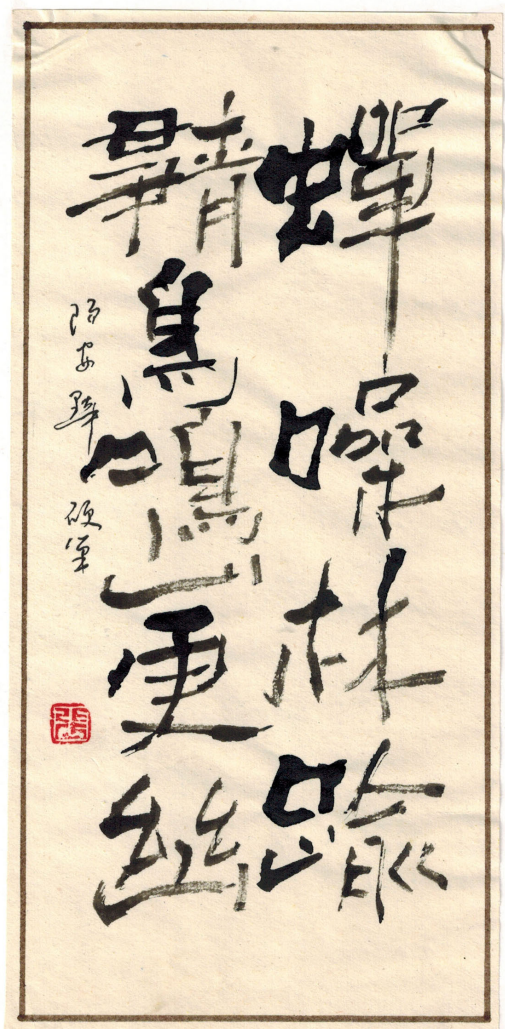 蟬噪林踰
靜鳥鳴山更幽
張